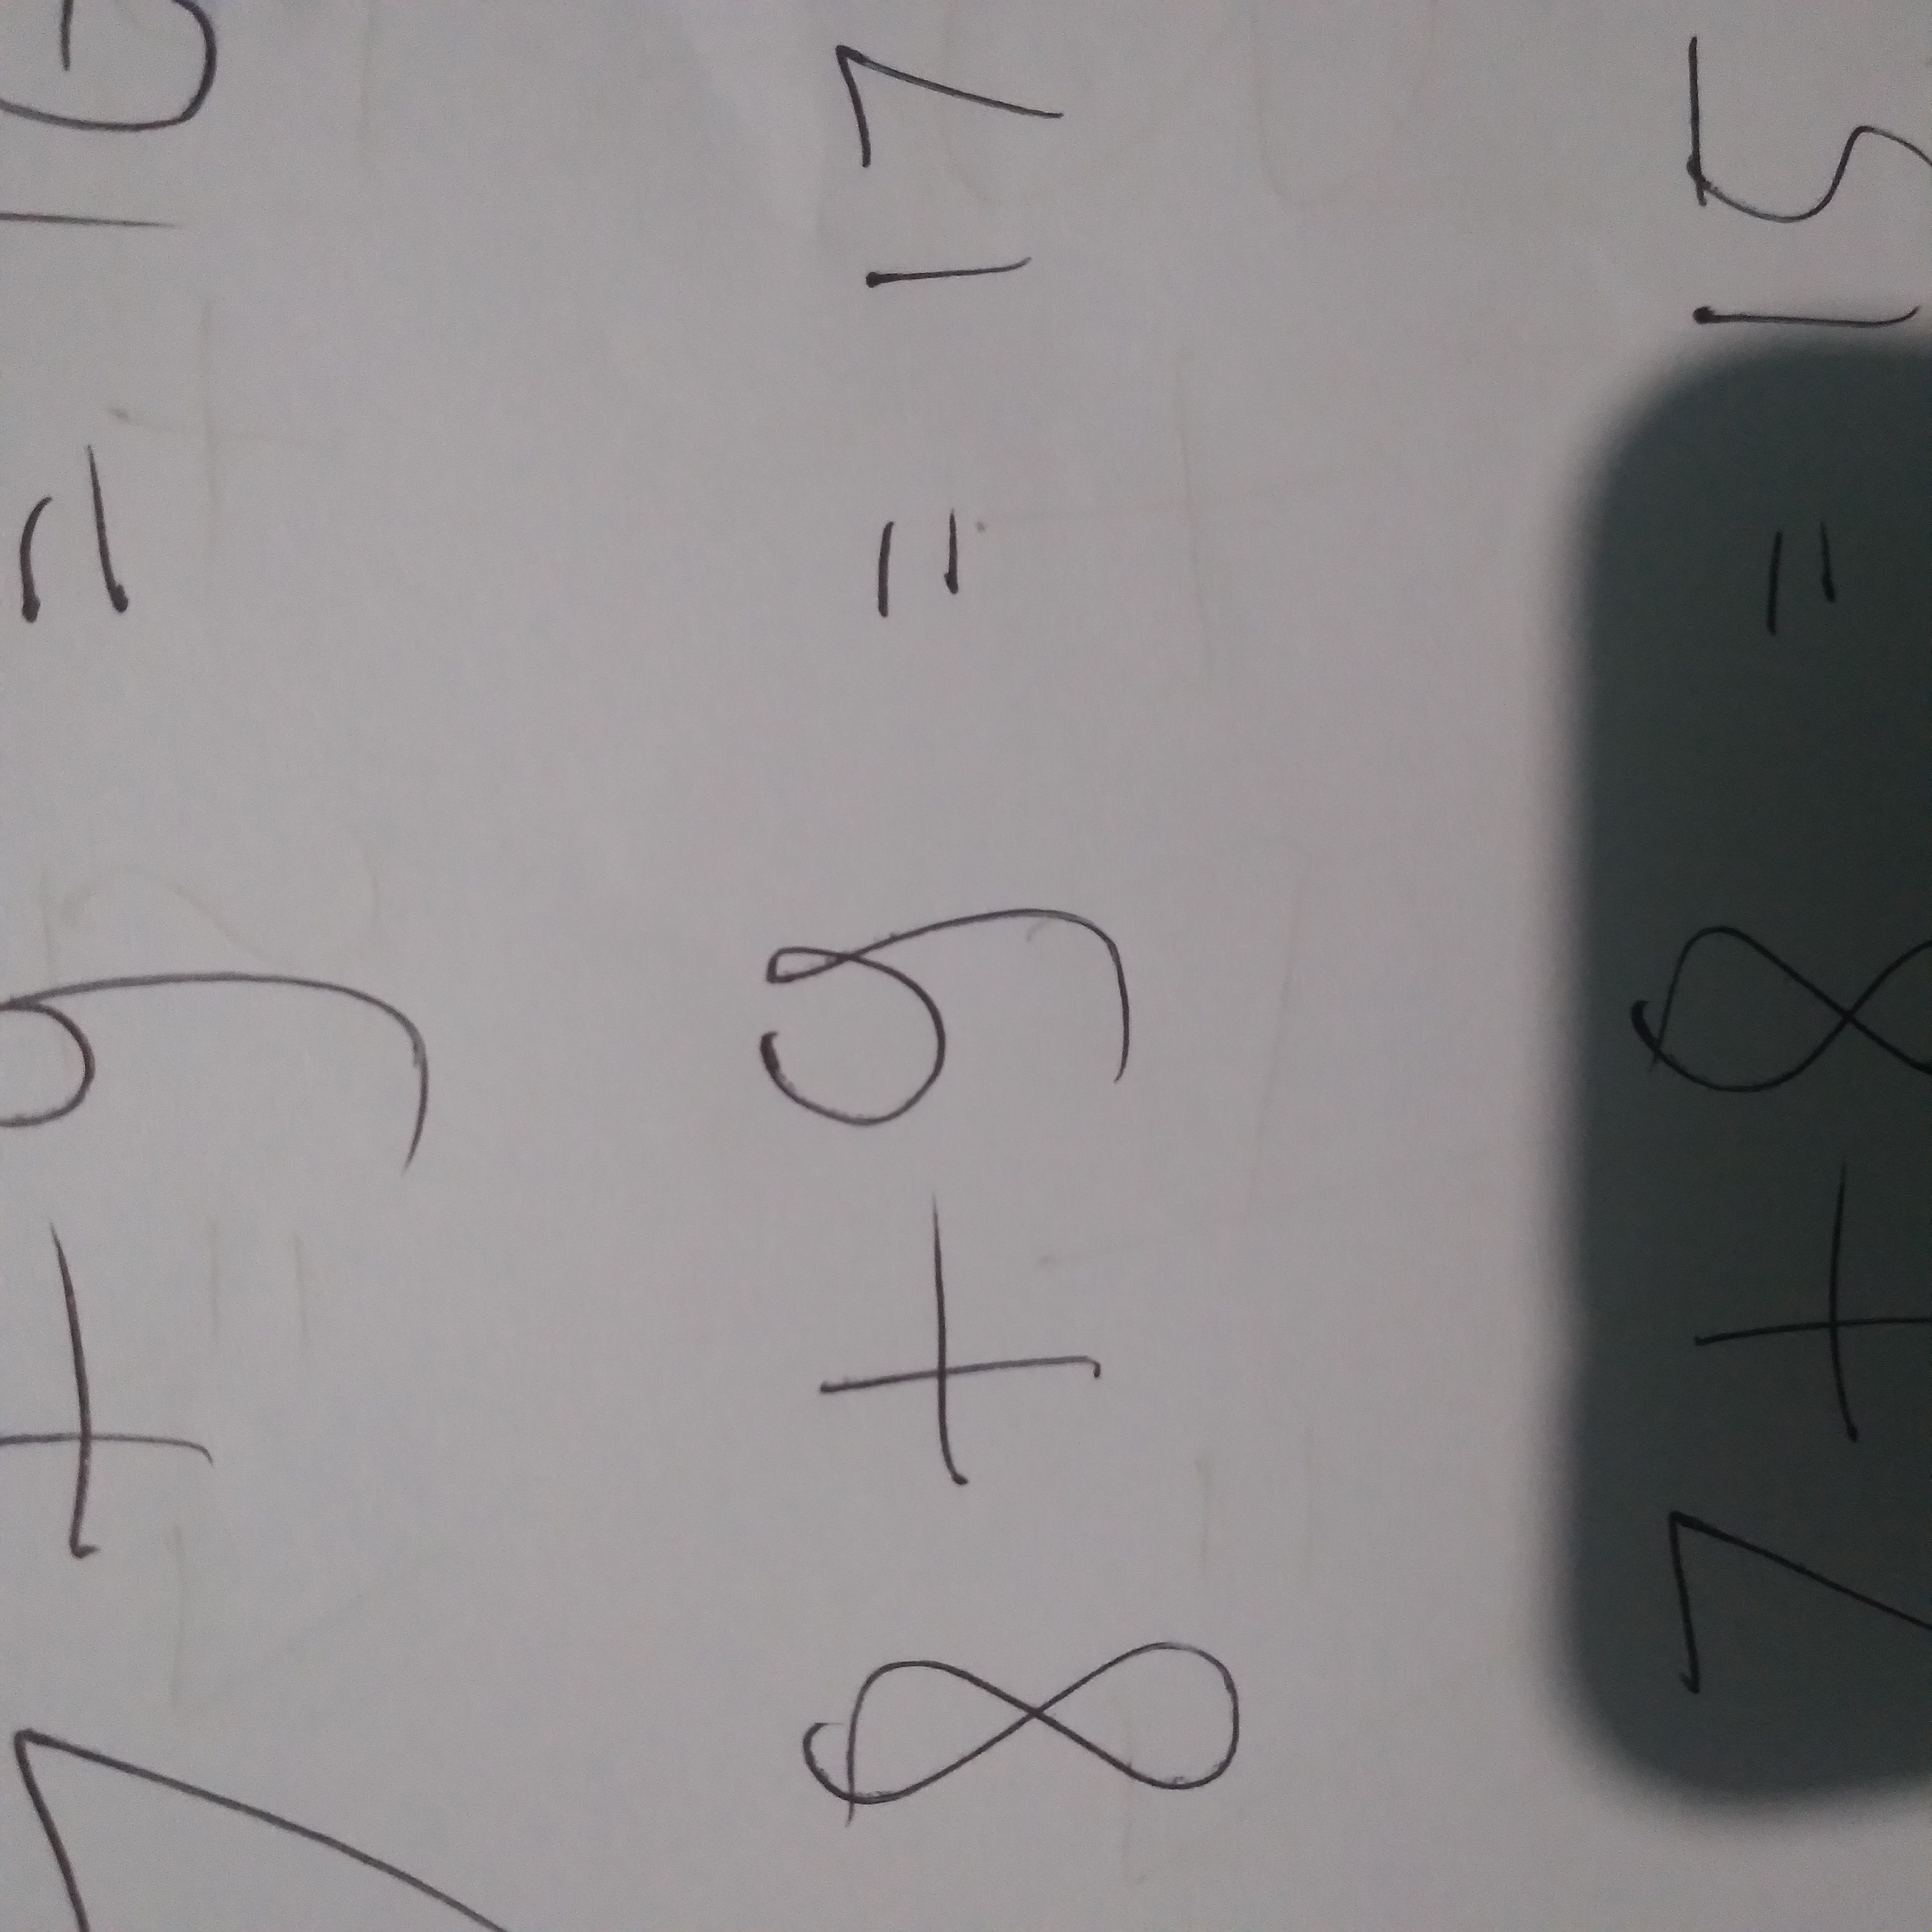 7 + 9 = 16
8 + 9 = 17
7 + 8 = 15